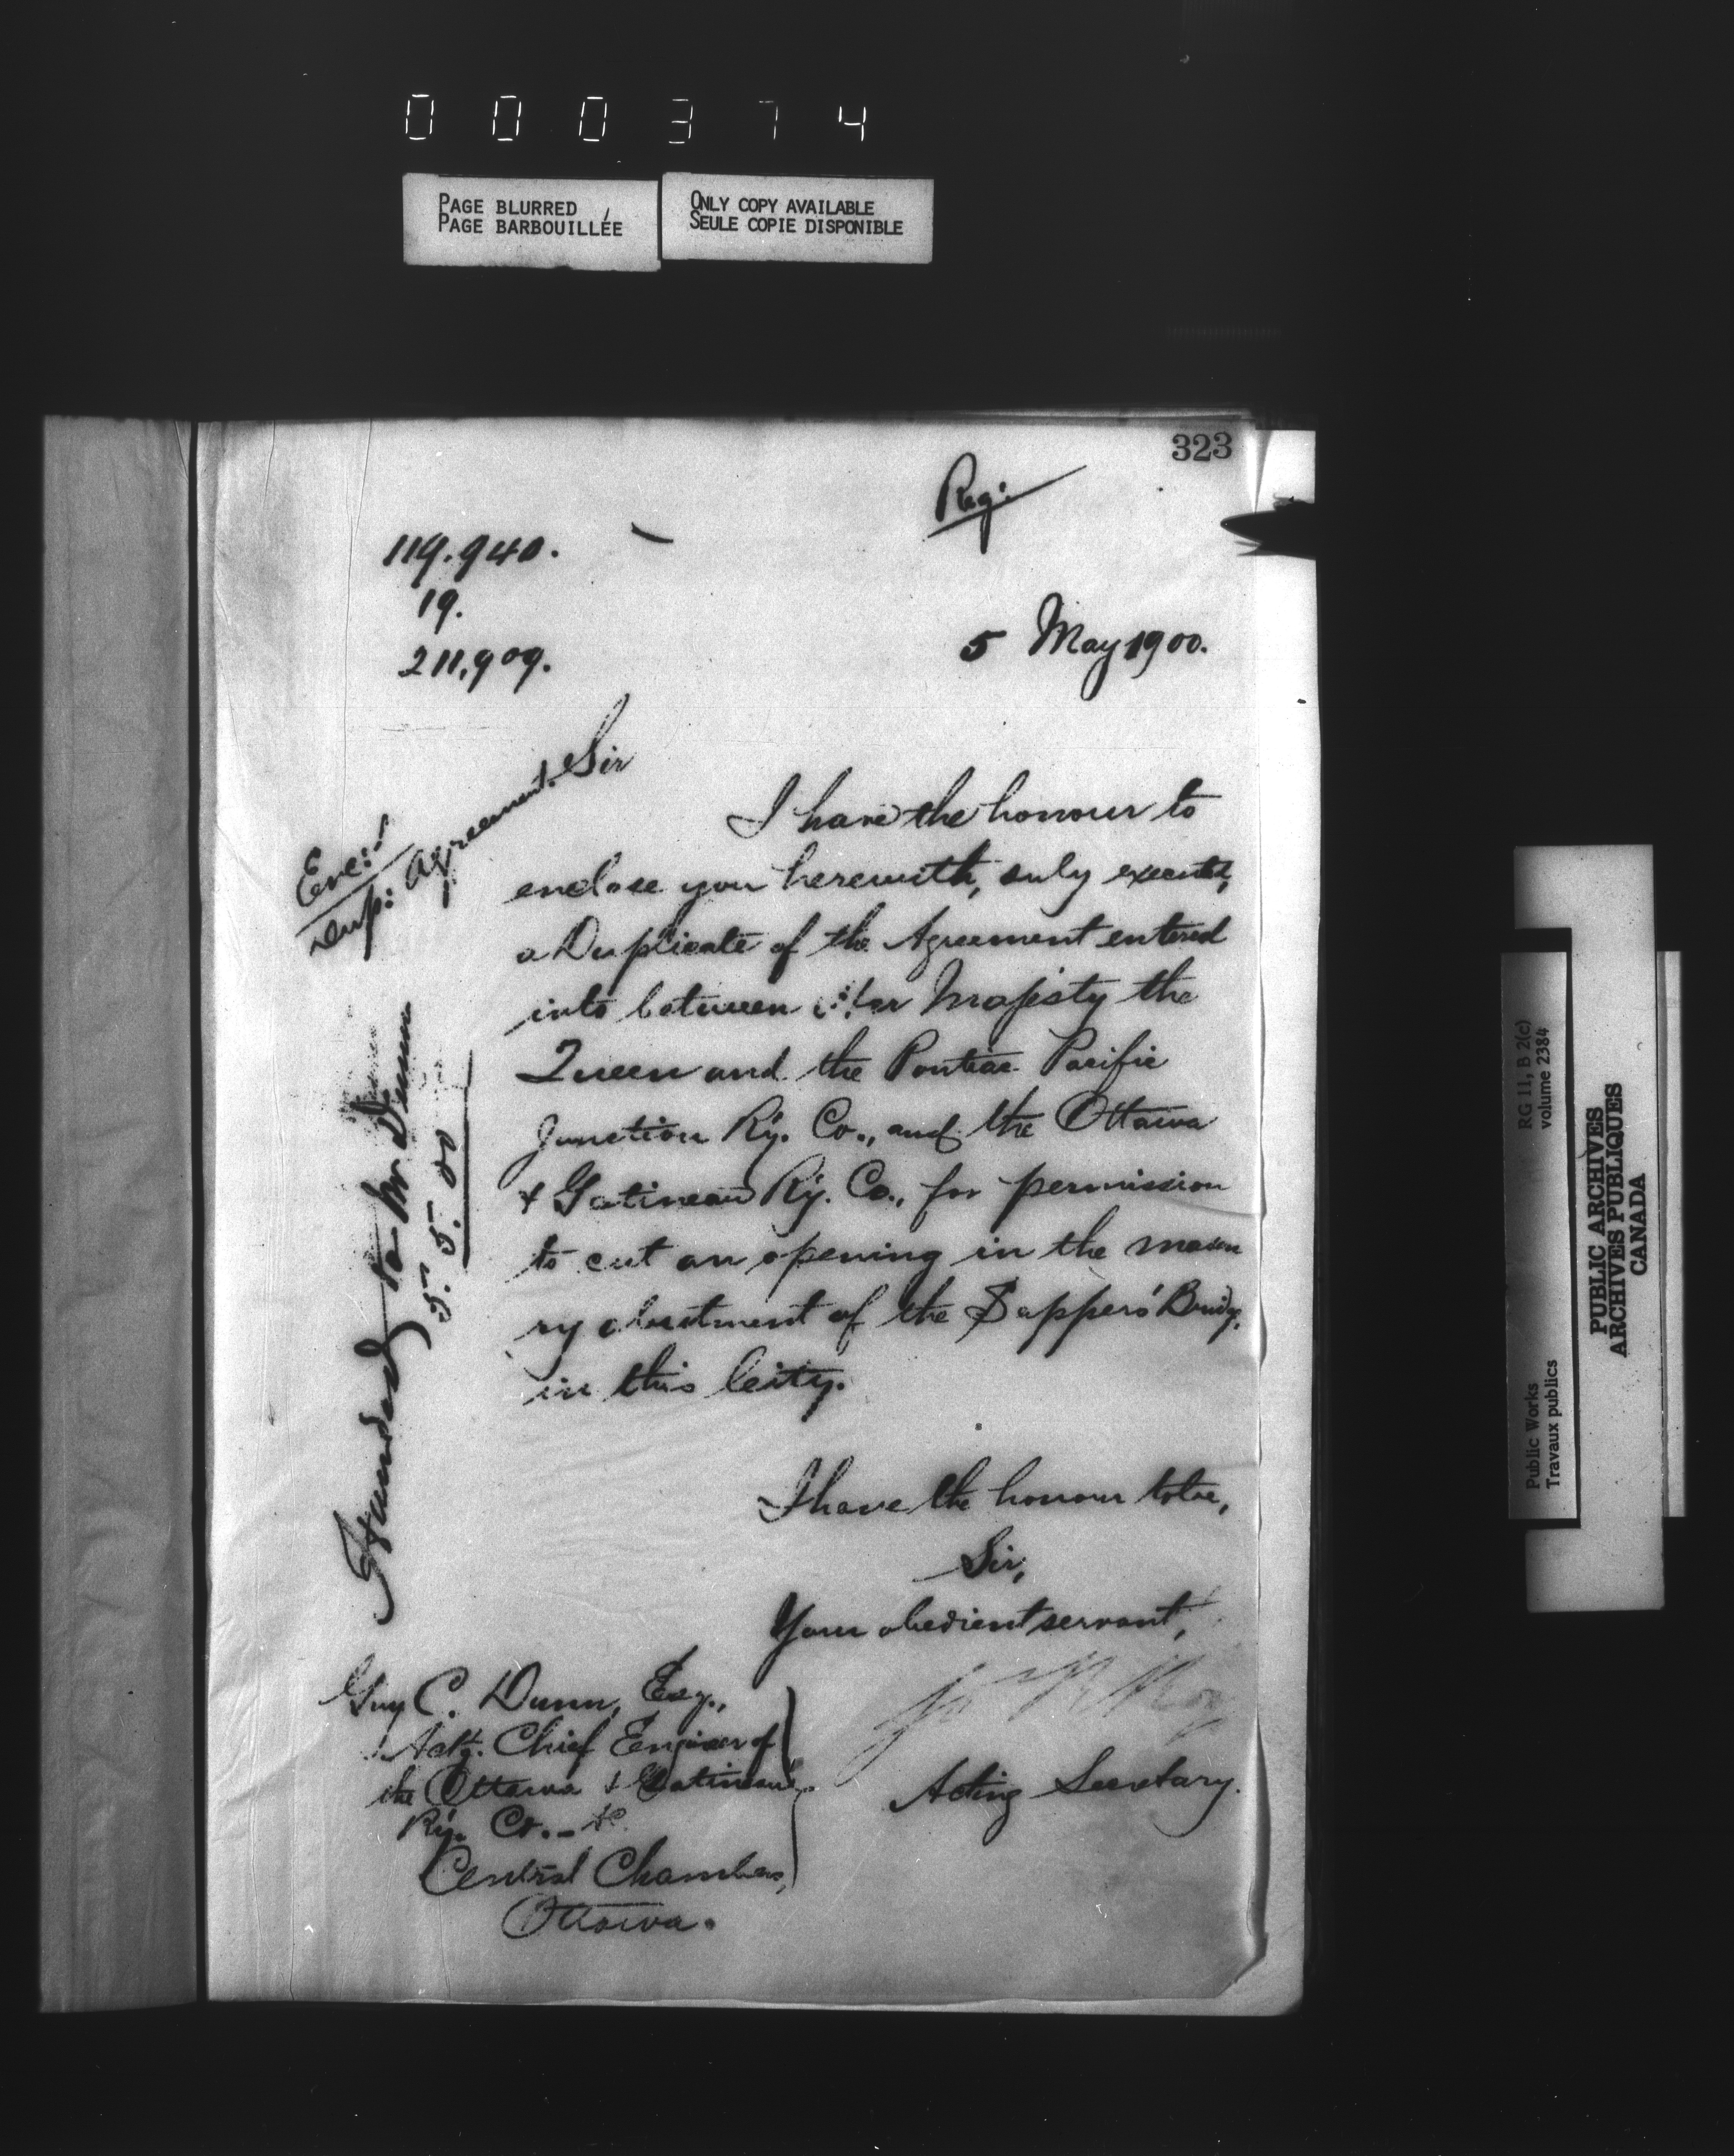 000374
PAGE BLURRED
PAGE BARBOUILLÉE
ONLY COPY AVAILABLE
SEULE COPIE DISPONIBLE
323
Reg:
119.940.
19.
211,909.
5 May 1900.
Enc:
Dup: Agreement.
Sir
I have the honour to
enclose you herewith, duly executed,
a Duplicate of the Agreement entered
into between Her Majesty the
Queen and the Pontiac Pacific
Junction Ry. Co., and the Ottawa
& Gatineau Ry. Co., for permission
to cut an opening in the mason
ry abutment of the Sappers' Bridge,
in this City.
Handed to Mr Dunn
5.5.00
I have the honour to be,
Sir,
Your obedient servant,
Acting Secretary.
Guy C. Dunn, Esq.,
Actg. Chief Engineer of
the Ottawa & Gatineau
Ry. Co. - &c.
Central Chambers,
Ottawa.
RG 11, B 2(c)
volume 2384
Public Works
Travaux publics
PUBLIC ARCHIVES
ARCHIVES PUBLIQUES
CANADA